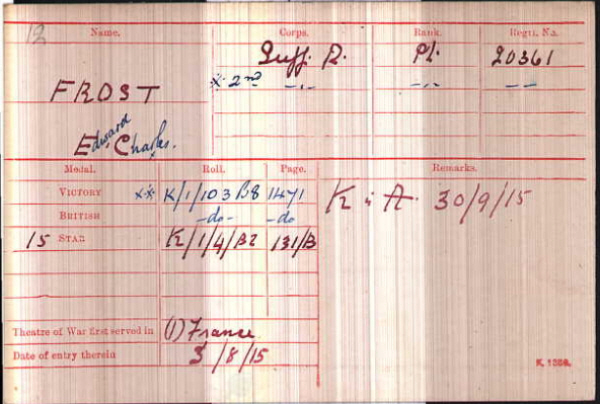 12 Name. Corps. Rank. Regtl. No.
Suff. R. Pt. 20361
FROST x 2nd -"- -"- -"-
Edward Charles.
Medal. Roll. Page. Remarks.
VICTORY xx K/1/103 B8 1471 K in A. 30/9/15
BRITISH -do- -do
15 STAR K/1/4/B2 131/B
Theatre of War first served in (1) France
Date of entry therein 3/8/15
K. 1380.